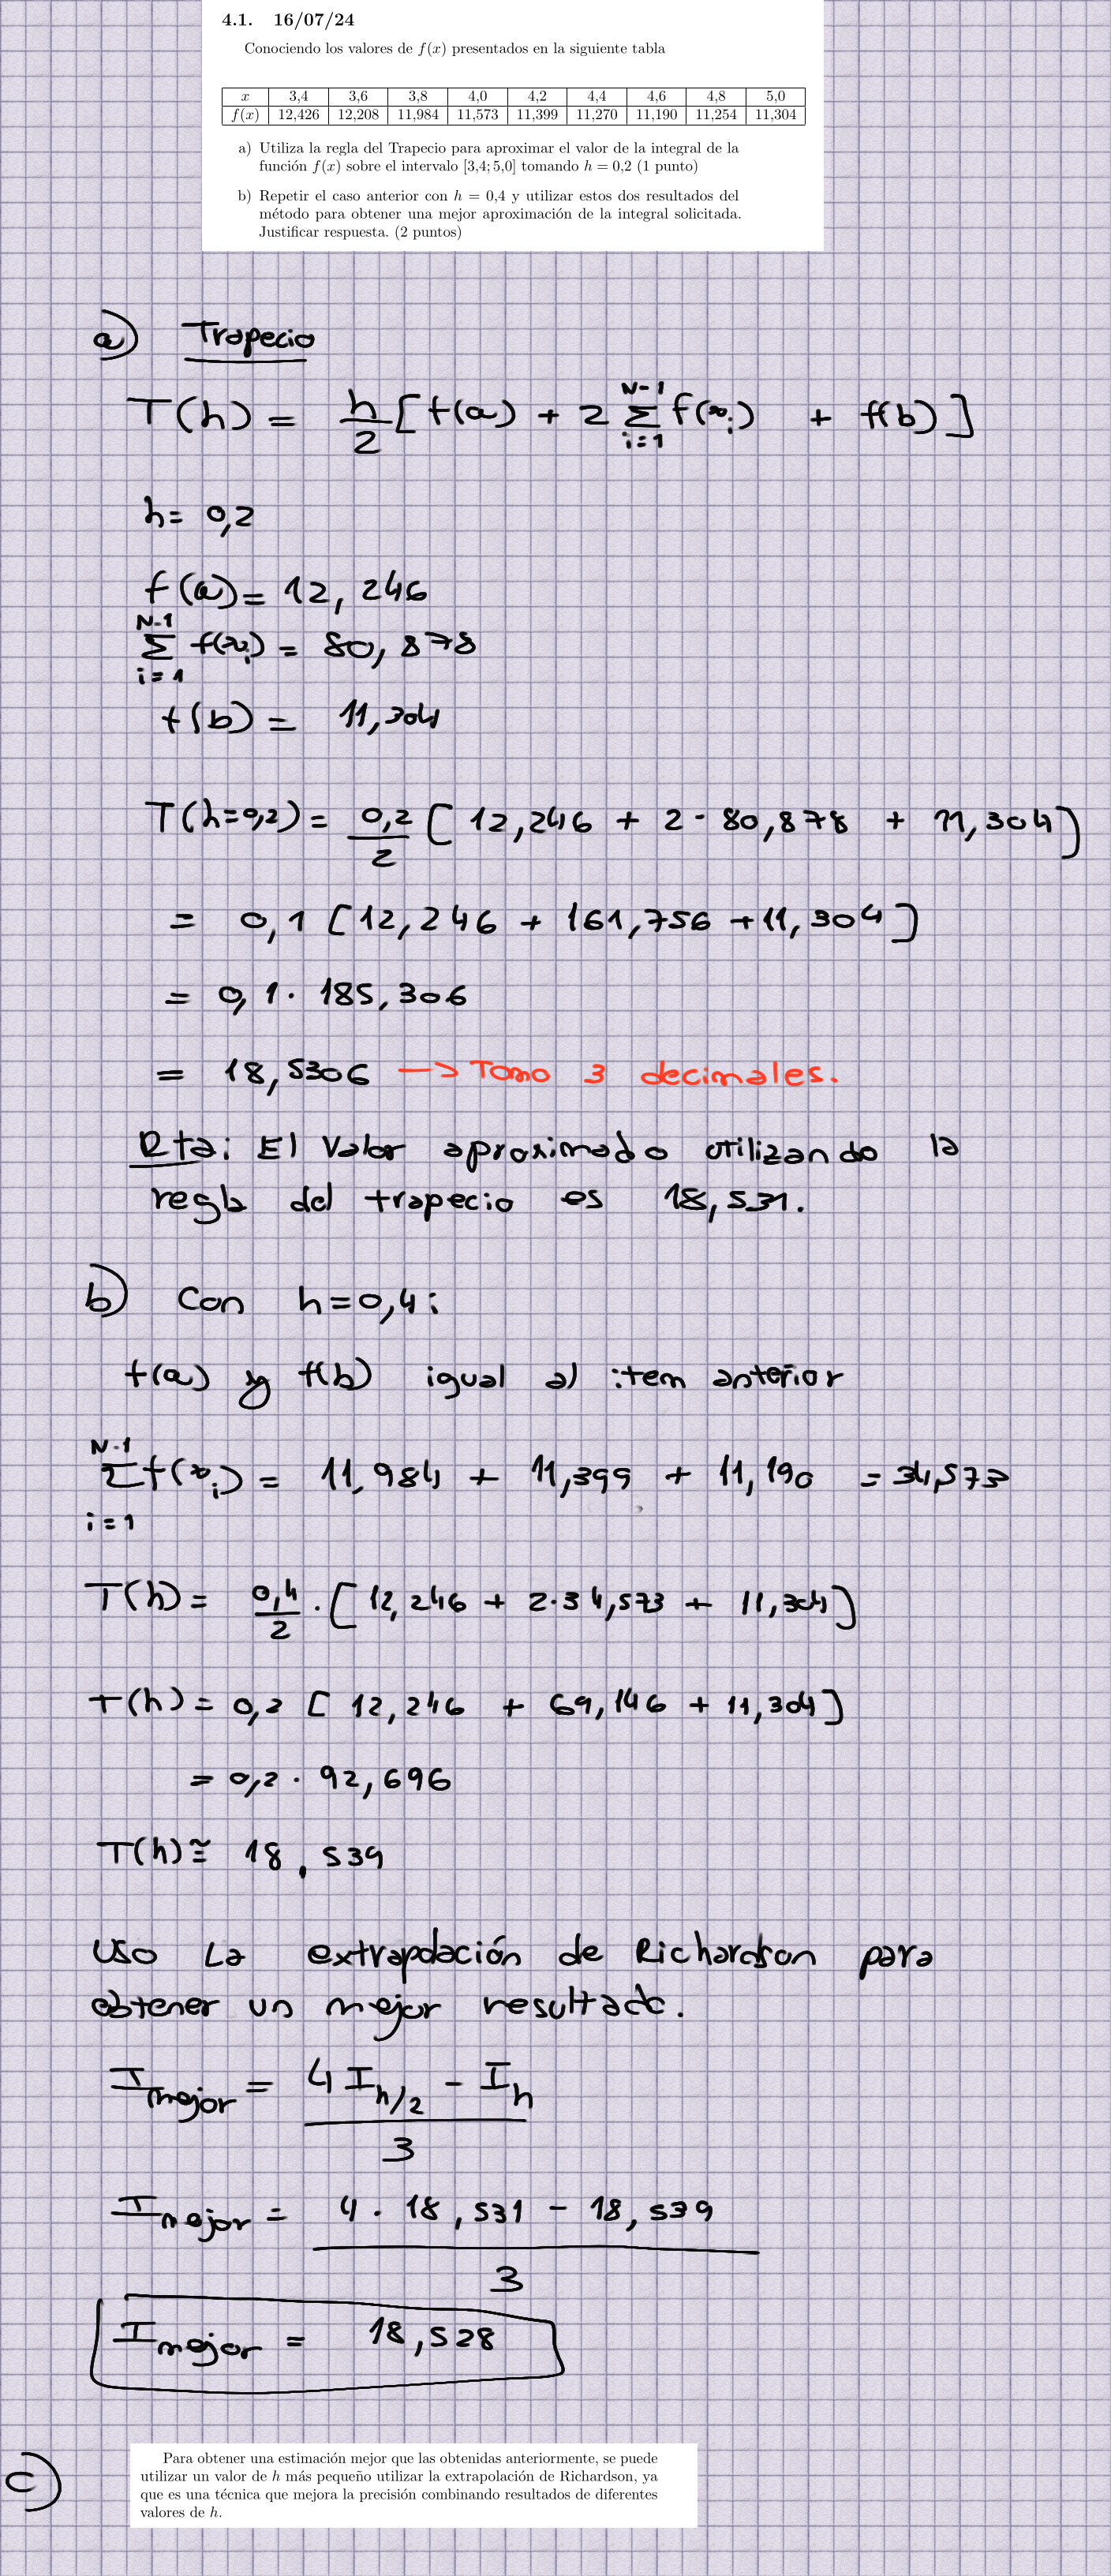 4.1. 16/07/24
Conociendo los valores de f(x) presentados en la siguiente tabla
x 3,4 3,6 3,8 4,0 4,2 4,4 4,6 4,8 5,0
f(x) 12,426 12,208 11,984 11,573 11,399 11,270 11,190 11,254 11,304
a) Utiliza la regla del Trapecio para aproximar el valor de la integral de la
función f(x) sobre el intervalo [3,4; 5,0] tomando h = 0,2 (1 punto)
b) Repetir el caso anterior con h = 0,4 y utilizar estos dos resultados del
método para obtener una mejor aproximación de la integral solicitada.
Justificar respuesta. (2 puntos)
a) Trapecio
T(h) = h/2 [f(a) + 2 ∑_{i=1}^{N-1} f(x_i) + f(b)]
h = 0,2
f(a) = 12,246
∑_{i=1}^{N-1} f(x_i) = 80,878
f(b) = 11,304
T(h=0,2) = 0,2/2 [12,246 + 2·80,878 + 11,304]
= 0,1 [12,246 + 161,756 + 11,304]
= 0,1 · 185,306
= 18,5306 → Tomo 3 decimales.
Rta: El Valor aproximado utilizando la
regla del trapecio es 18,531.
b) Con h=0,4:
f(a) y f(b) igual al item anterior
∑_{i=1}^{N-1} f(x_i) = 11,984 + 11,399 + 11,190 = 34,573
T(h) = 0,4/2 · [12,246 + 2·34,573 + 11,304]
T(h) = 0,2 [12,246 + 69,146 + 11,304]
= 0,2 · 92,696
T(h) ≅ 18,539
Uso La extrapolación de Richardson para
obtener un mejor resultado.
I_mejor = (4 I_{h/2} - I_h)/3
I_mejor = (4 · 18,531 - 18,539)/3
I_mejor = 18,528
c)
Para obtener una estimación mejor que las obtenidas anteriormente, se puede
utilizar un valor de h más pequeño utilizar la extrapolación de Richardson, ya
que es una técnica que mejora la precisión combinando resultados de diferentes
valores de h.